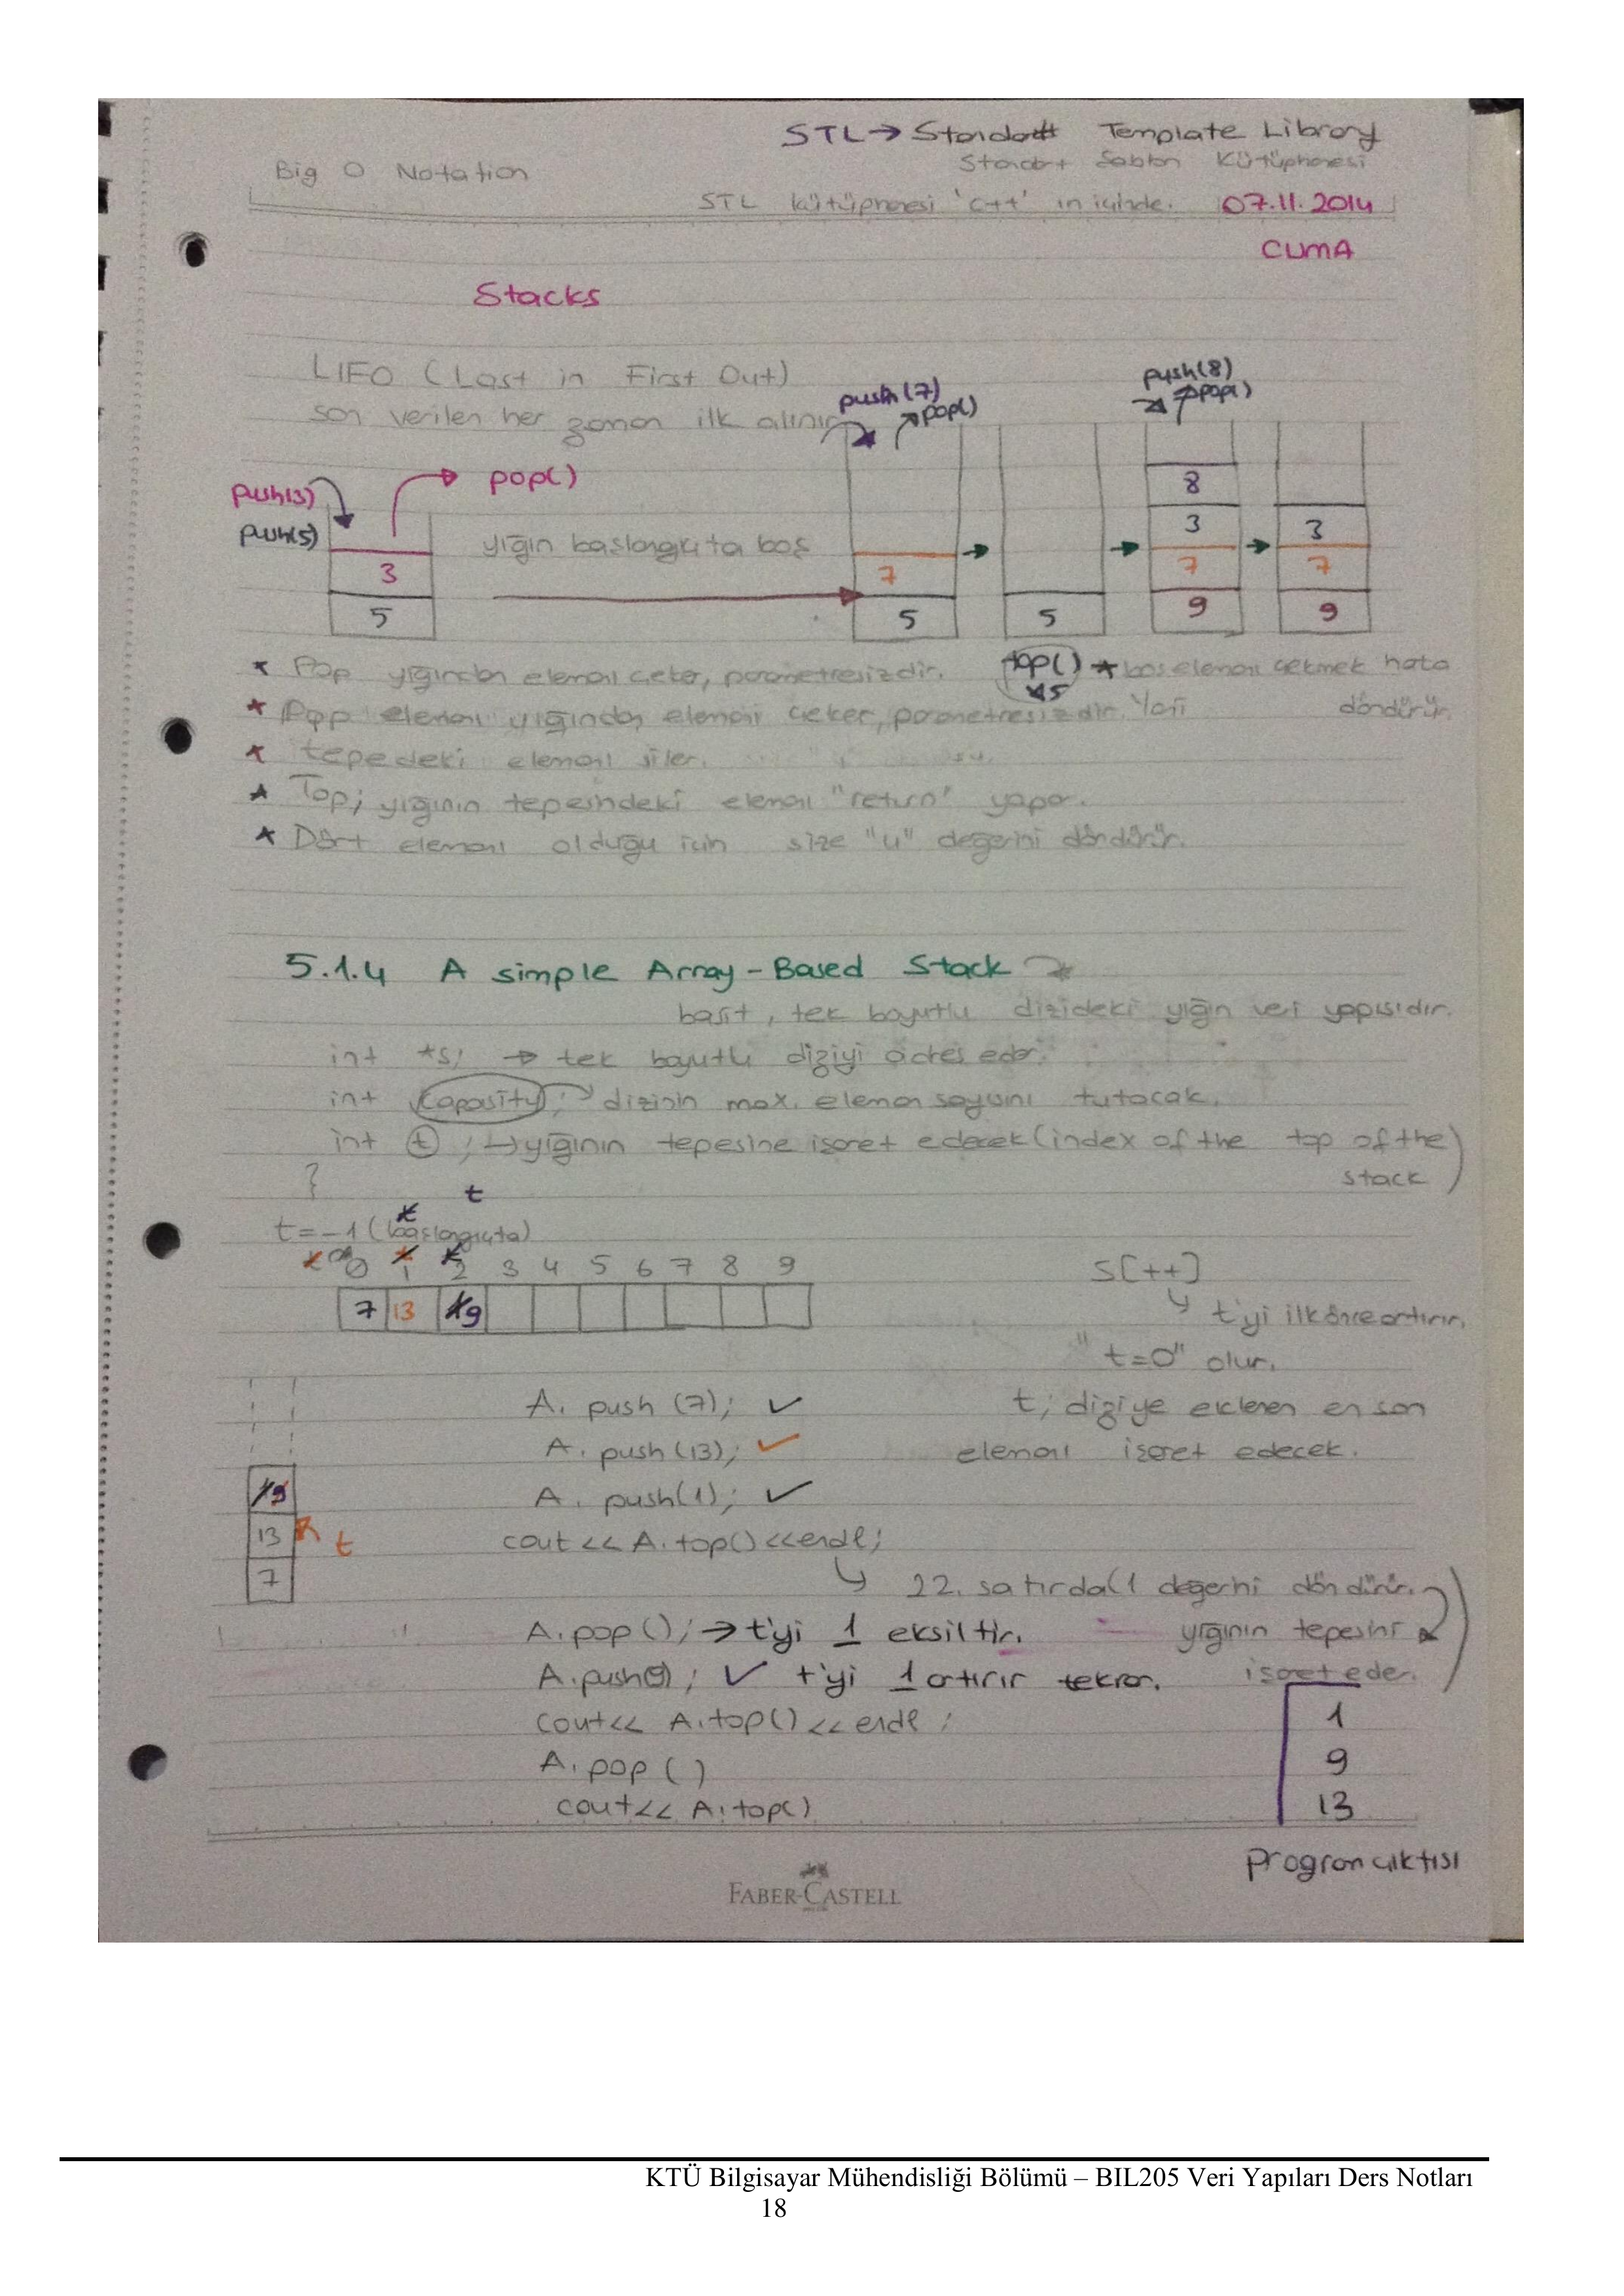 STL → Standart Template Library
Standart Sablon Kütüphanesi
Big O Notation
STL kütüphanesi 'c++' ın içinde. 07.11.2014
CUMA
Stacks
LIFO (Last in First Out)
son verilen her zaman ilk alınır
push(7)
pop()
push(8)
pop()
push(3)
push(5)
pop()
yığın baslangıcta bos
3
5
7
5
5
8
3
7
9
3
7
9
* Pop yığından eleman ceker, parametresizdir.
top()
5
* bos eleman cekmek hata döndürür.
* Pop elemanı yığından elemanı ceker, parametresizdir. Yani
* tepedeki elemanı siler.
* Top; yığının tepesindeki elemanı "return" yapar.
* Dört elemanı olduğu icin size "4" değerini döndürür.
5.1.4 A simple Array-Based Stack
basit, tek boyutlu dizideki yığın veri yapısıdır.
int *s; → tek boyutlu diziyi adres eder.
int capasity; → dizinin max. eleman sayısını tutacak.
int t; → yığının tepesine isaret edecek (index of the top of the stack)
}
t
t
t=-1 (baslangıcta)
0 1 2 3 4 5 6 7 8 9
7 13 1 9
S[++]
t'yi ilk önce artırır.
"t=0" olur.
t; diziye eklenen en son
elemanı isaret edecek.
A. push (7); ✓
A. push (13); ✓
A. push(1); ✓
1 9
13
7
t
cout << A.top() << endl;
22. satırda(1 değerini döndürür.
yığının tepesini
isaret eder.)
A.pop(); → t'yi 1 eksiltir.
A.push(9); ✓ t'yi 1 artırır tekrar.
cout << A.top() << endl;
A.pop ()
cout << A.top()
1
9
13
Program cıktısı
FABER-CASTELL
KTÜ Bilgisayar Mühendisliği Bölümü – BIL205 Veri Yapıları Ders Notları
18